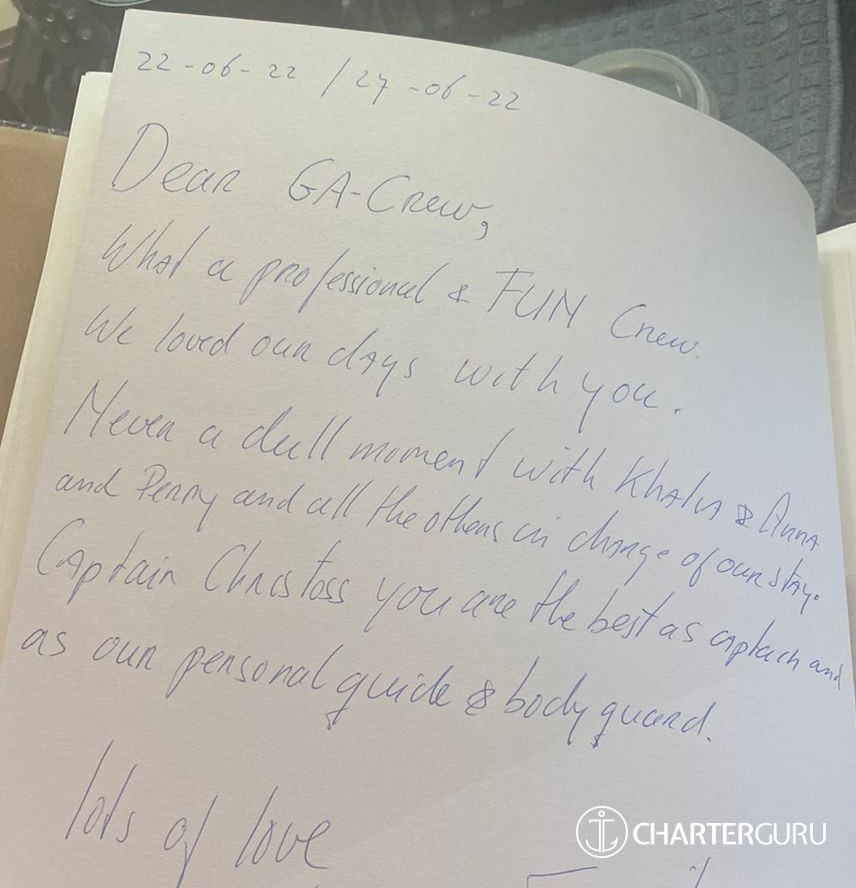 22-06-22 / 27-06-22
Dear GA-Crew,
What a professional & FUN Crew.
We loved our days with you.
Never a dull moment with Khalia & Anna
and Perry and all the others in charge of our stay.
Captain Christoss you are the best as captain and
as our personal guide & body guard.
lots of love
CHARTERGURU